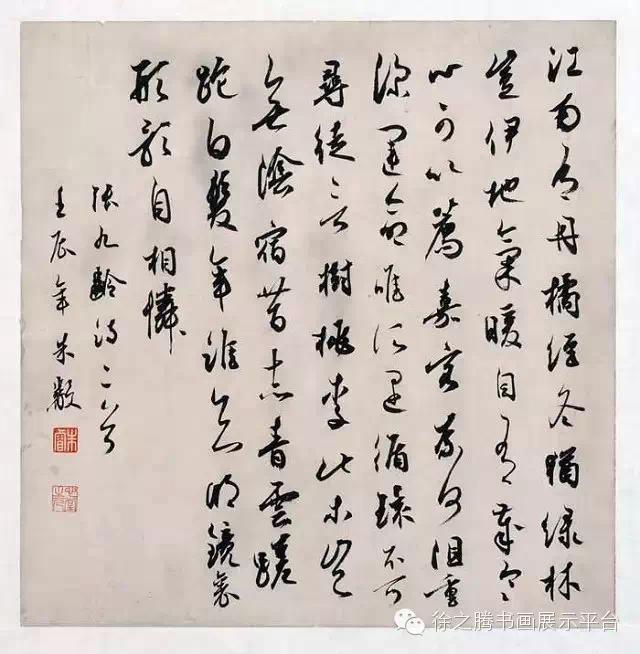 江南有丹橘經冬猶綠林
豈伊地氣暖自有歲寒
心可以薦嘉客奈何阻重
深運命唯所遇循環不可
尋徒言樹桃李此木豈
無陰宿昔志青雲蹉
跎白髮年誰知明鏡裏
形影自相憐
張九齡詩二首
壬辰年朱
徐之腾书画展示平台